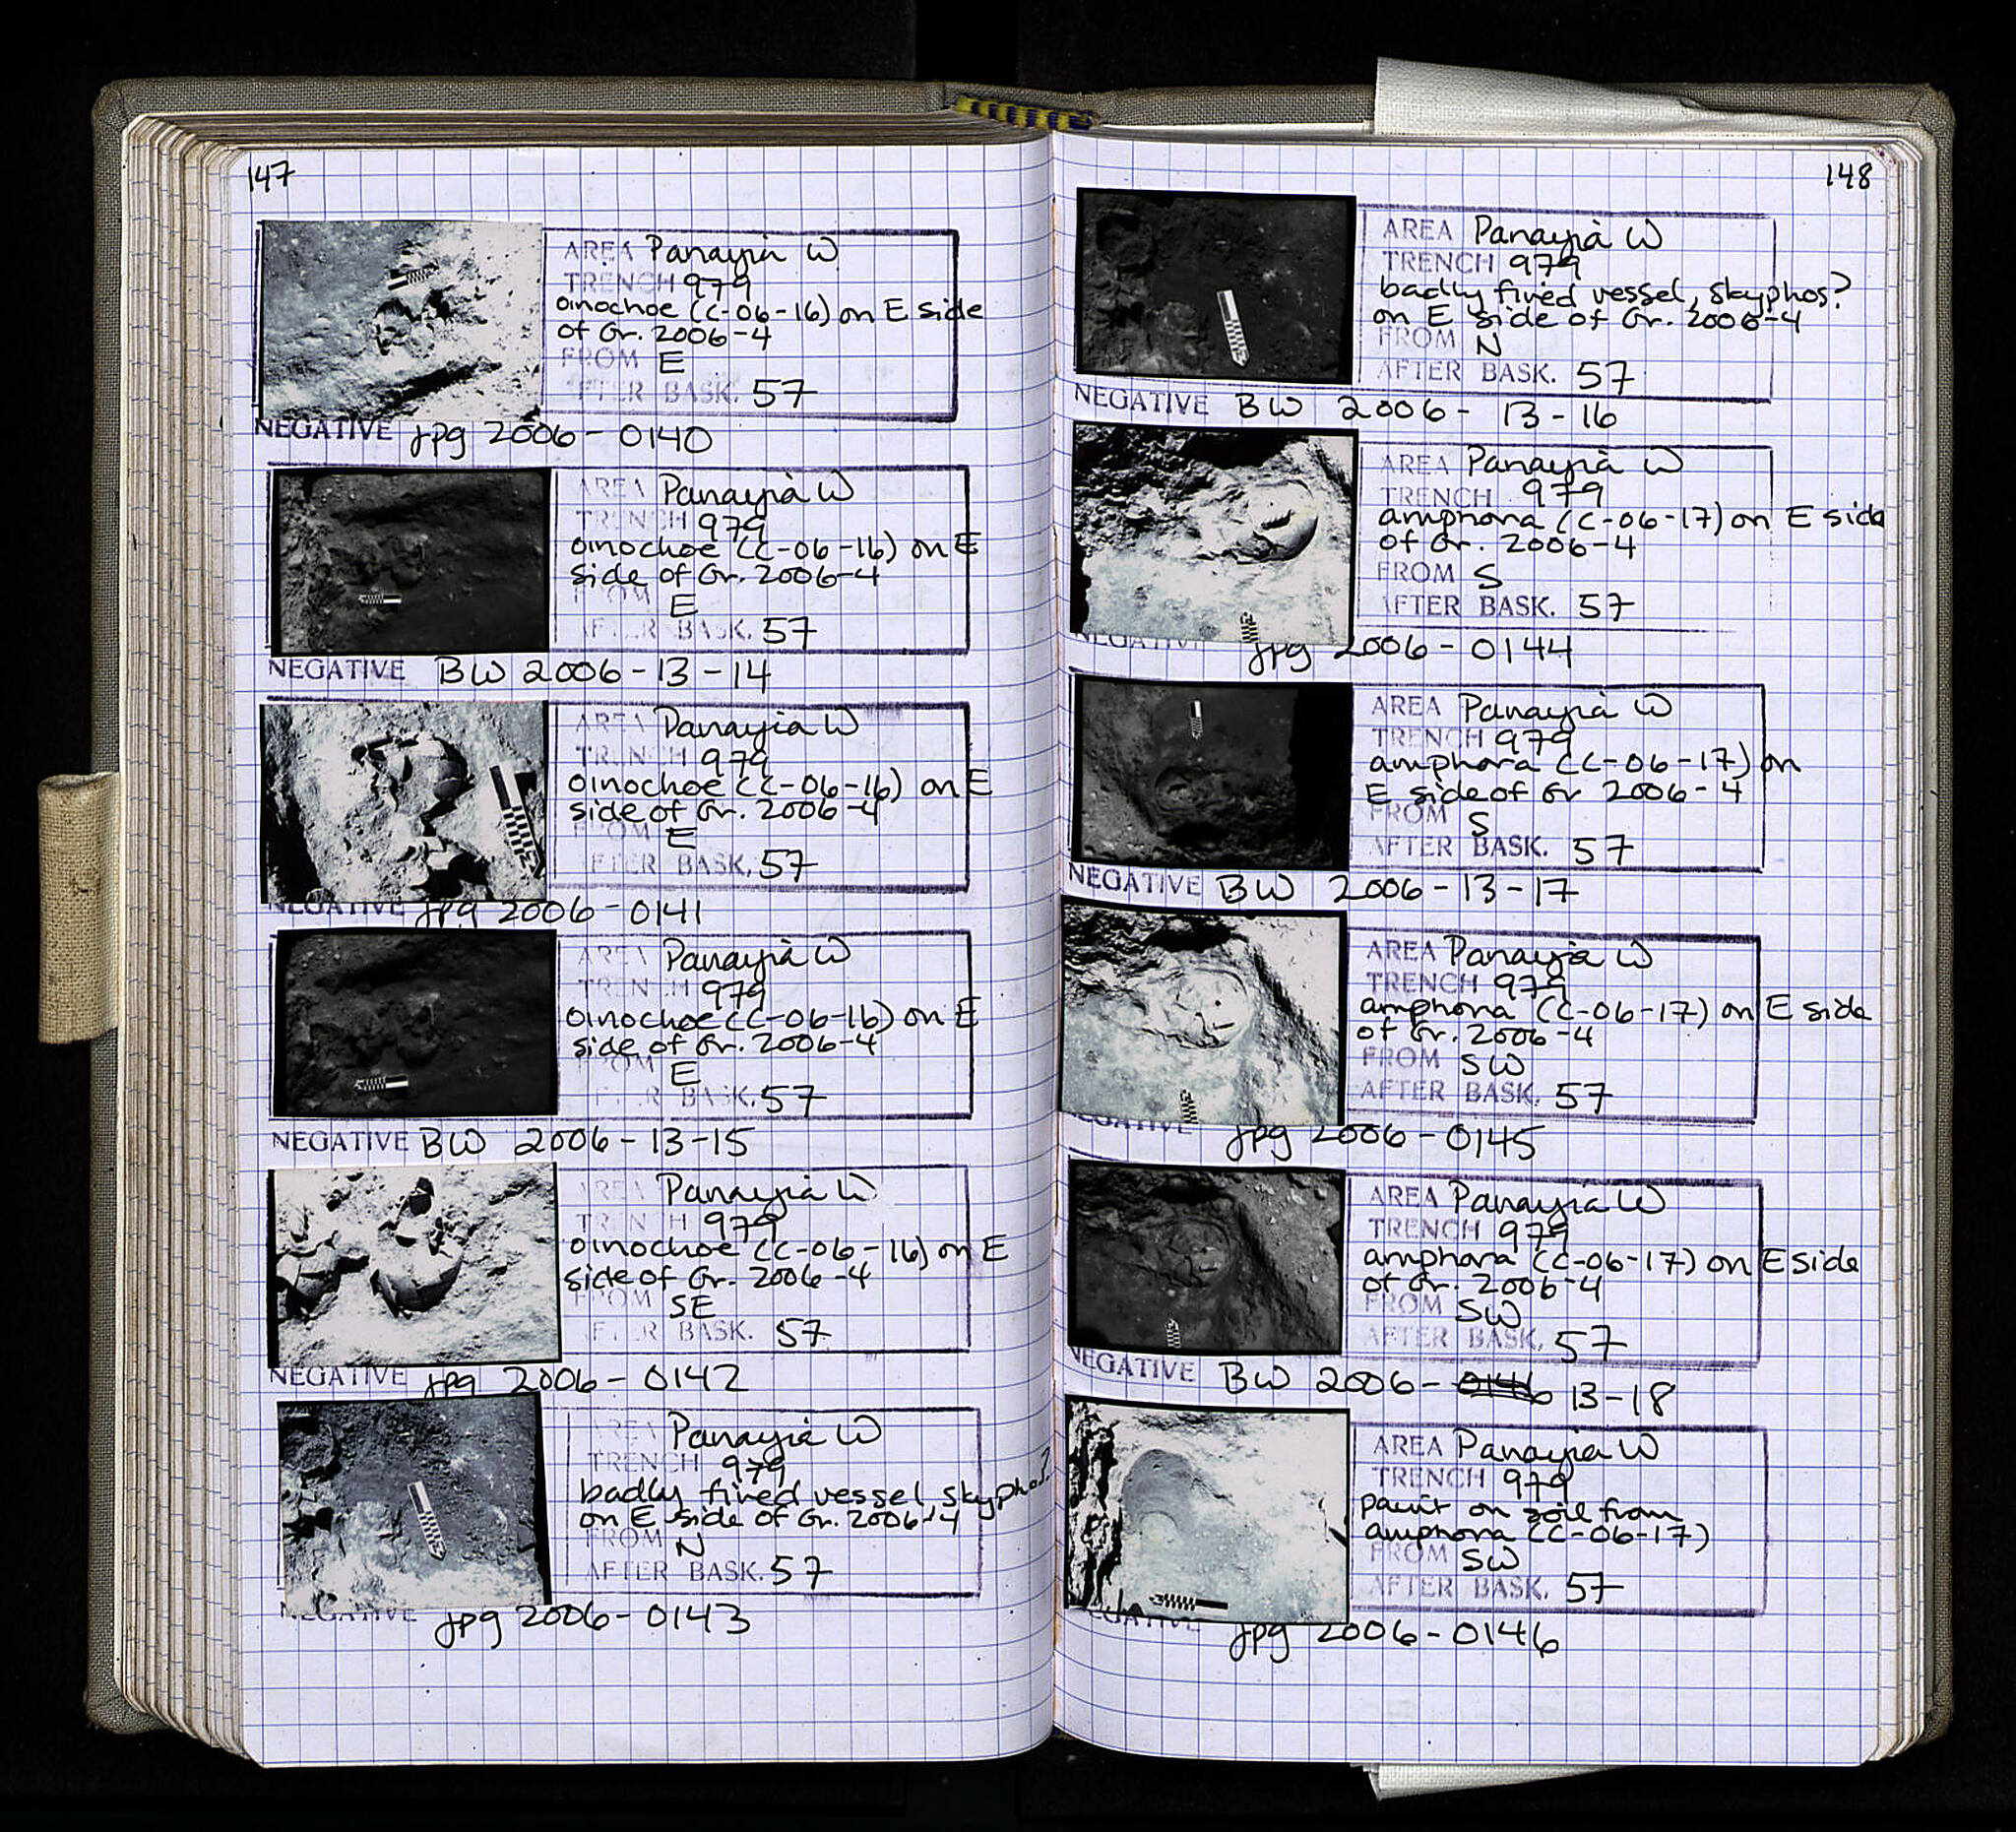 147
AREA Panayia W
TRENCH 979
oinochoe (C-06-16) on E side
of Gr. 2006-4
FROM E
AFTER BASK. 57
NEGATIVE jpg 2006-0140
AREA Panayia W
TRENCH 979
oinochoe (C-06-16) on E
side of Gr. 2006-4
FROM E
AFTER BASK. 57
NEGATIVE BW 2006-13-14
AREA Panayia W
TRENCH 979
oinochoe (C-06-16) on E
side of Gr. 2006-4
FROM E
AFTER BASK. 57
NEGATIVE jpg 2006-0141
AREA Panayia W
TRENCH 979
oinochoe (C-06-16) on E
side of Gr. 2006-4
FROM E
AFTER BASK. 57
NEGATIVE BW 2006-13-15
AREA Panayia W
TRENCH 979
oinochoe (C-06-16) on E
side of Gr. 2006-4
FROM SE
AFTER BASK. 57
NEGATIVE jpg 2006-0142
AREA Panayia W
TRENCH 979
badly fired vessel, skyphos?
on E side of Gr. 2006-4
FROM N
AFTER BASK. 57
NEGATIVE jpg 2006-0143
148
AREA Panayia W
TRENCH 979
badly fired vessel, skyphos?
on E side of Gr. 2006-4
FROM N
AFTER BASK. 57
NEGATIVE BW 2006-13-16
AREA Panayia W
TRENCH 979
amphora (C-06-17) on E side
of Gr. 2006-4
FROM S
AFTER BASK. 57
NEGATIVE jpg 2006-0144
AREA Panayia W
TRENCH 979
amphora (C-06-17) on
E side of Gr 2006-4
FROM S
AFTER BASK. 57
NEGATIVE BW 2006-13-17
AREA Panayia W
TRENCH 979
amphora (C-06-17) on E side
of Gr. 2006-4
FROM SW
AFTER BASK. 57
NEGATIVE jpg 2006-0145
AREA Panayia W
TRENCH 979
amphora (C-06-17) on E side
of Gr. 2006-4
FROM SW
AFTER BASK. 57
NEGATIVE BW 2006-0146 13-18
AREA Panayia W
TRENCH 979
paint on soil from
amphora (C-06-17)
FROM SW
AFTER BASK. 57
NEGATIVE jpg 2006-0146